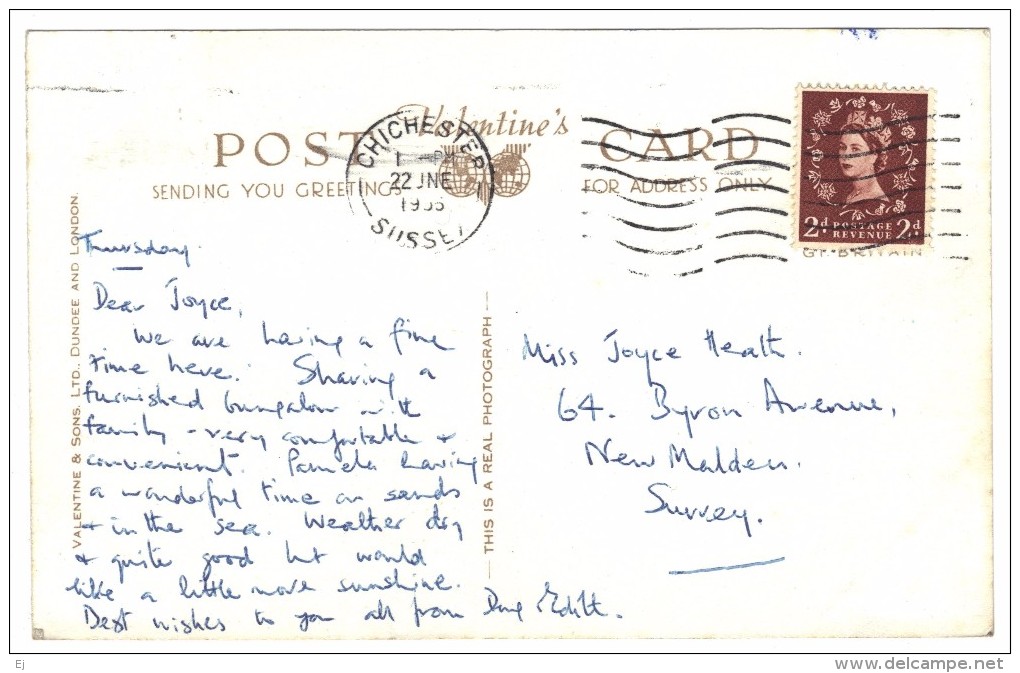 Valentine's
POST CARD
SENDING YOU GREETINGS
FOR ADDRESS ONLY
CHICHESTER
22 JNE
SUSSEX
2d POSTAGE REVENUE 2d
GT. BRITAIN
VALENTINE & SONS, LTD., DUNDEE AND LONDON.
Thursday.
Dear Joyce,
We are having a fine
time here. Sharing a
furnished bungalow with
family - very comfortable +
convenient. Pamela having
a wonderful time on sands
+ in the sea. Weather dry
+ quite good but would
like a little more sunshine.
Best wishes to you all from Edith.
THIS IS A REAL PHOTOGRAPH
Miss Joyce Heath.
64. Byron Avenue,
New Malden.
Surrey.
Ej
delcampe.net